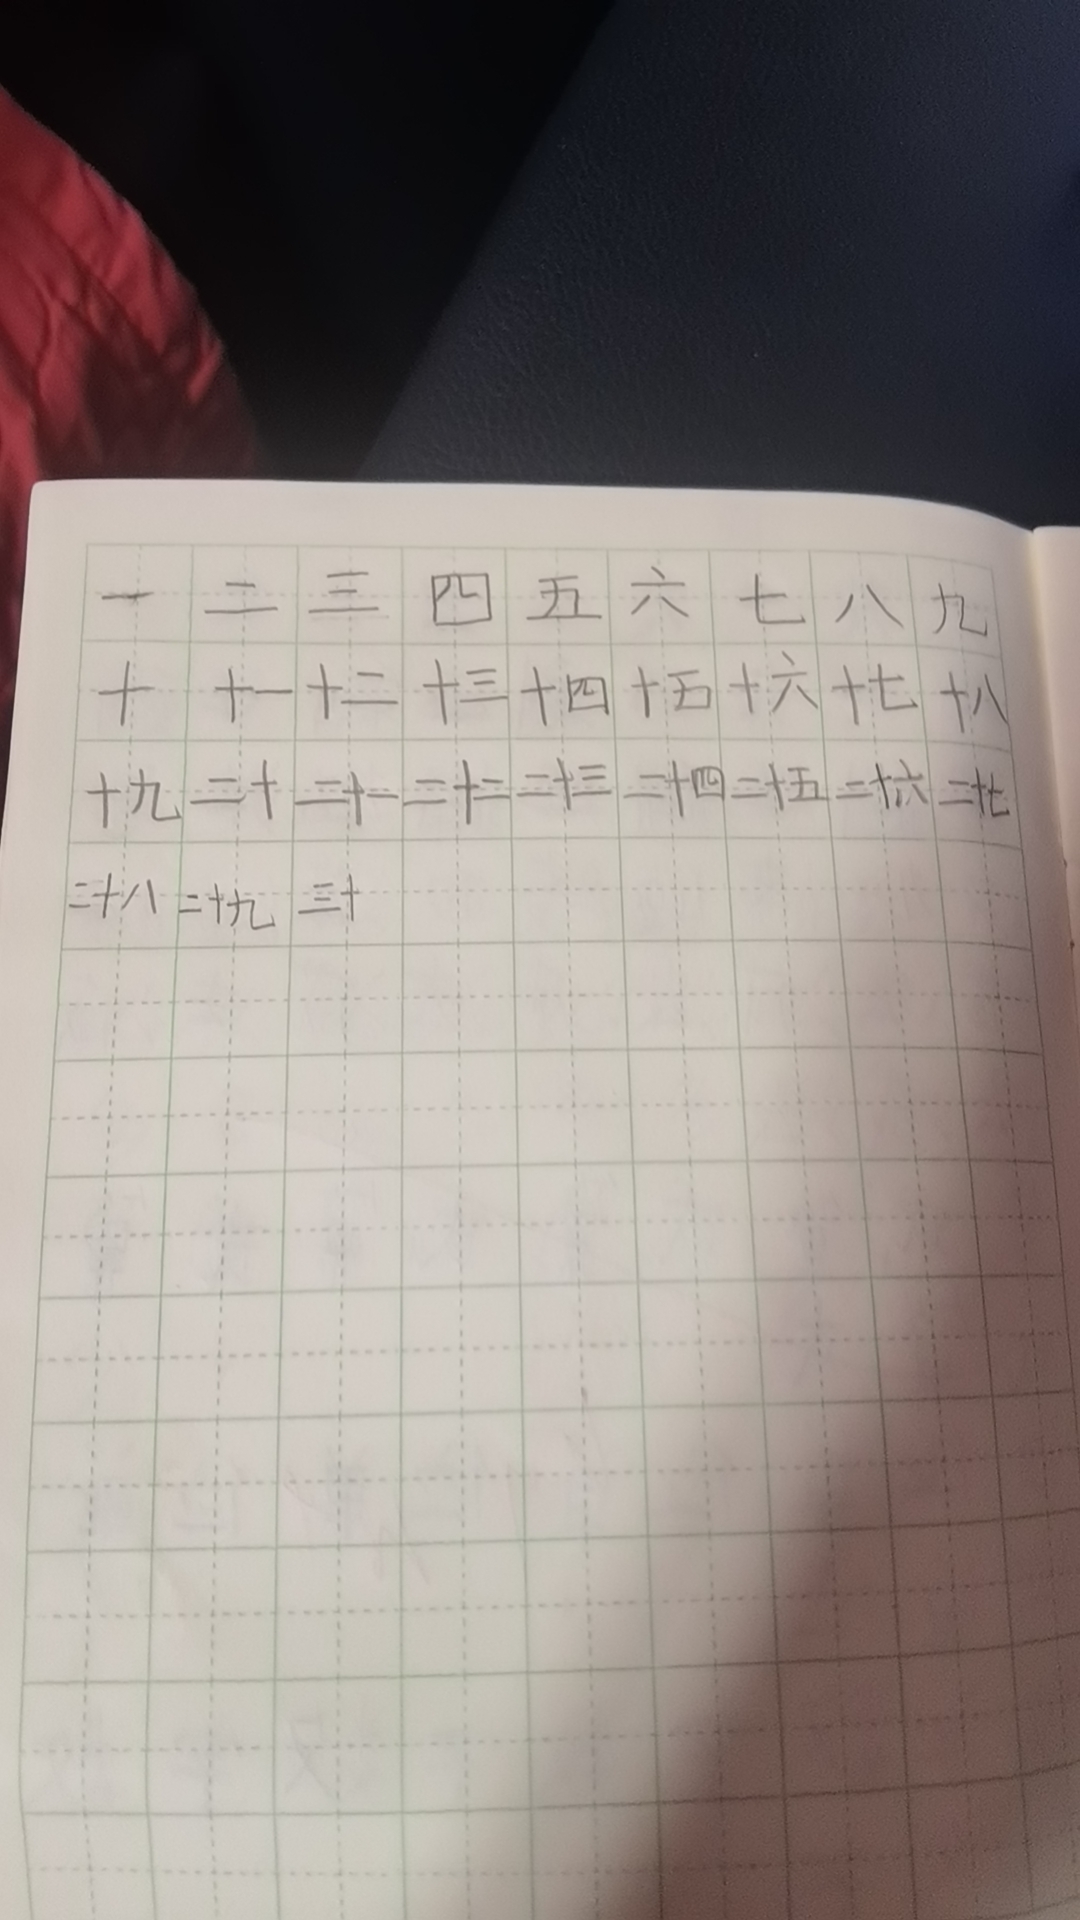 一 二 三 四 五 六 七 八 九
十 十一 十二 十三 十四 十五 十六 十七 十八
十九 二十 二十一 二十二 二十三 二十四 二十五 二十六 二十七
二十八 二十九 三十